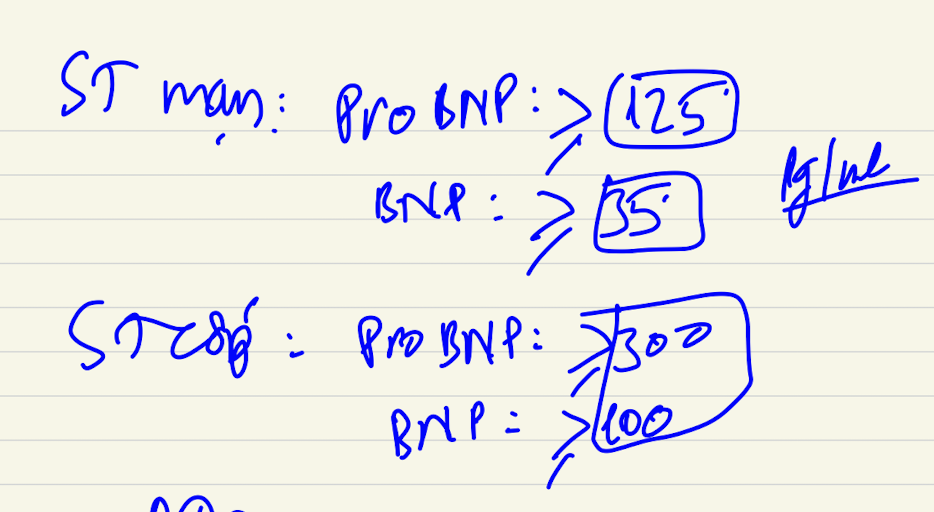 ST mạn: ProBNP: ≥ 125
BNP: ≥ 35 pg/ml
ST cấp: ProBNP: ≥ 300
BNP: ≥ 100